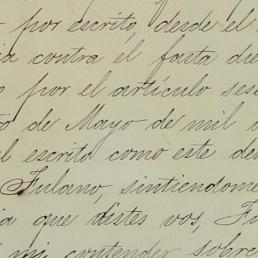 por escrito, desde el
contra el fasta die
por el artículo ses
de Mayo de mil
escrito como este de
Fulano, sintiendome
que distes vos, Fu
mi contender sobre